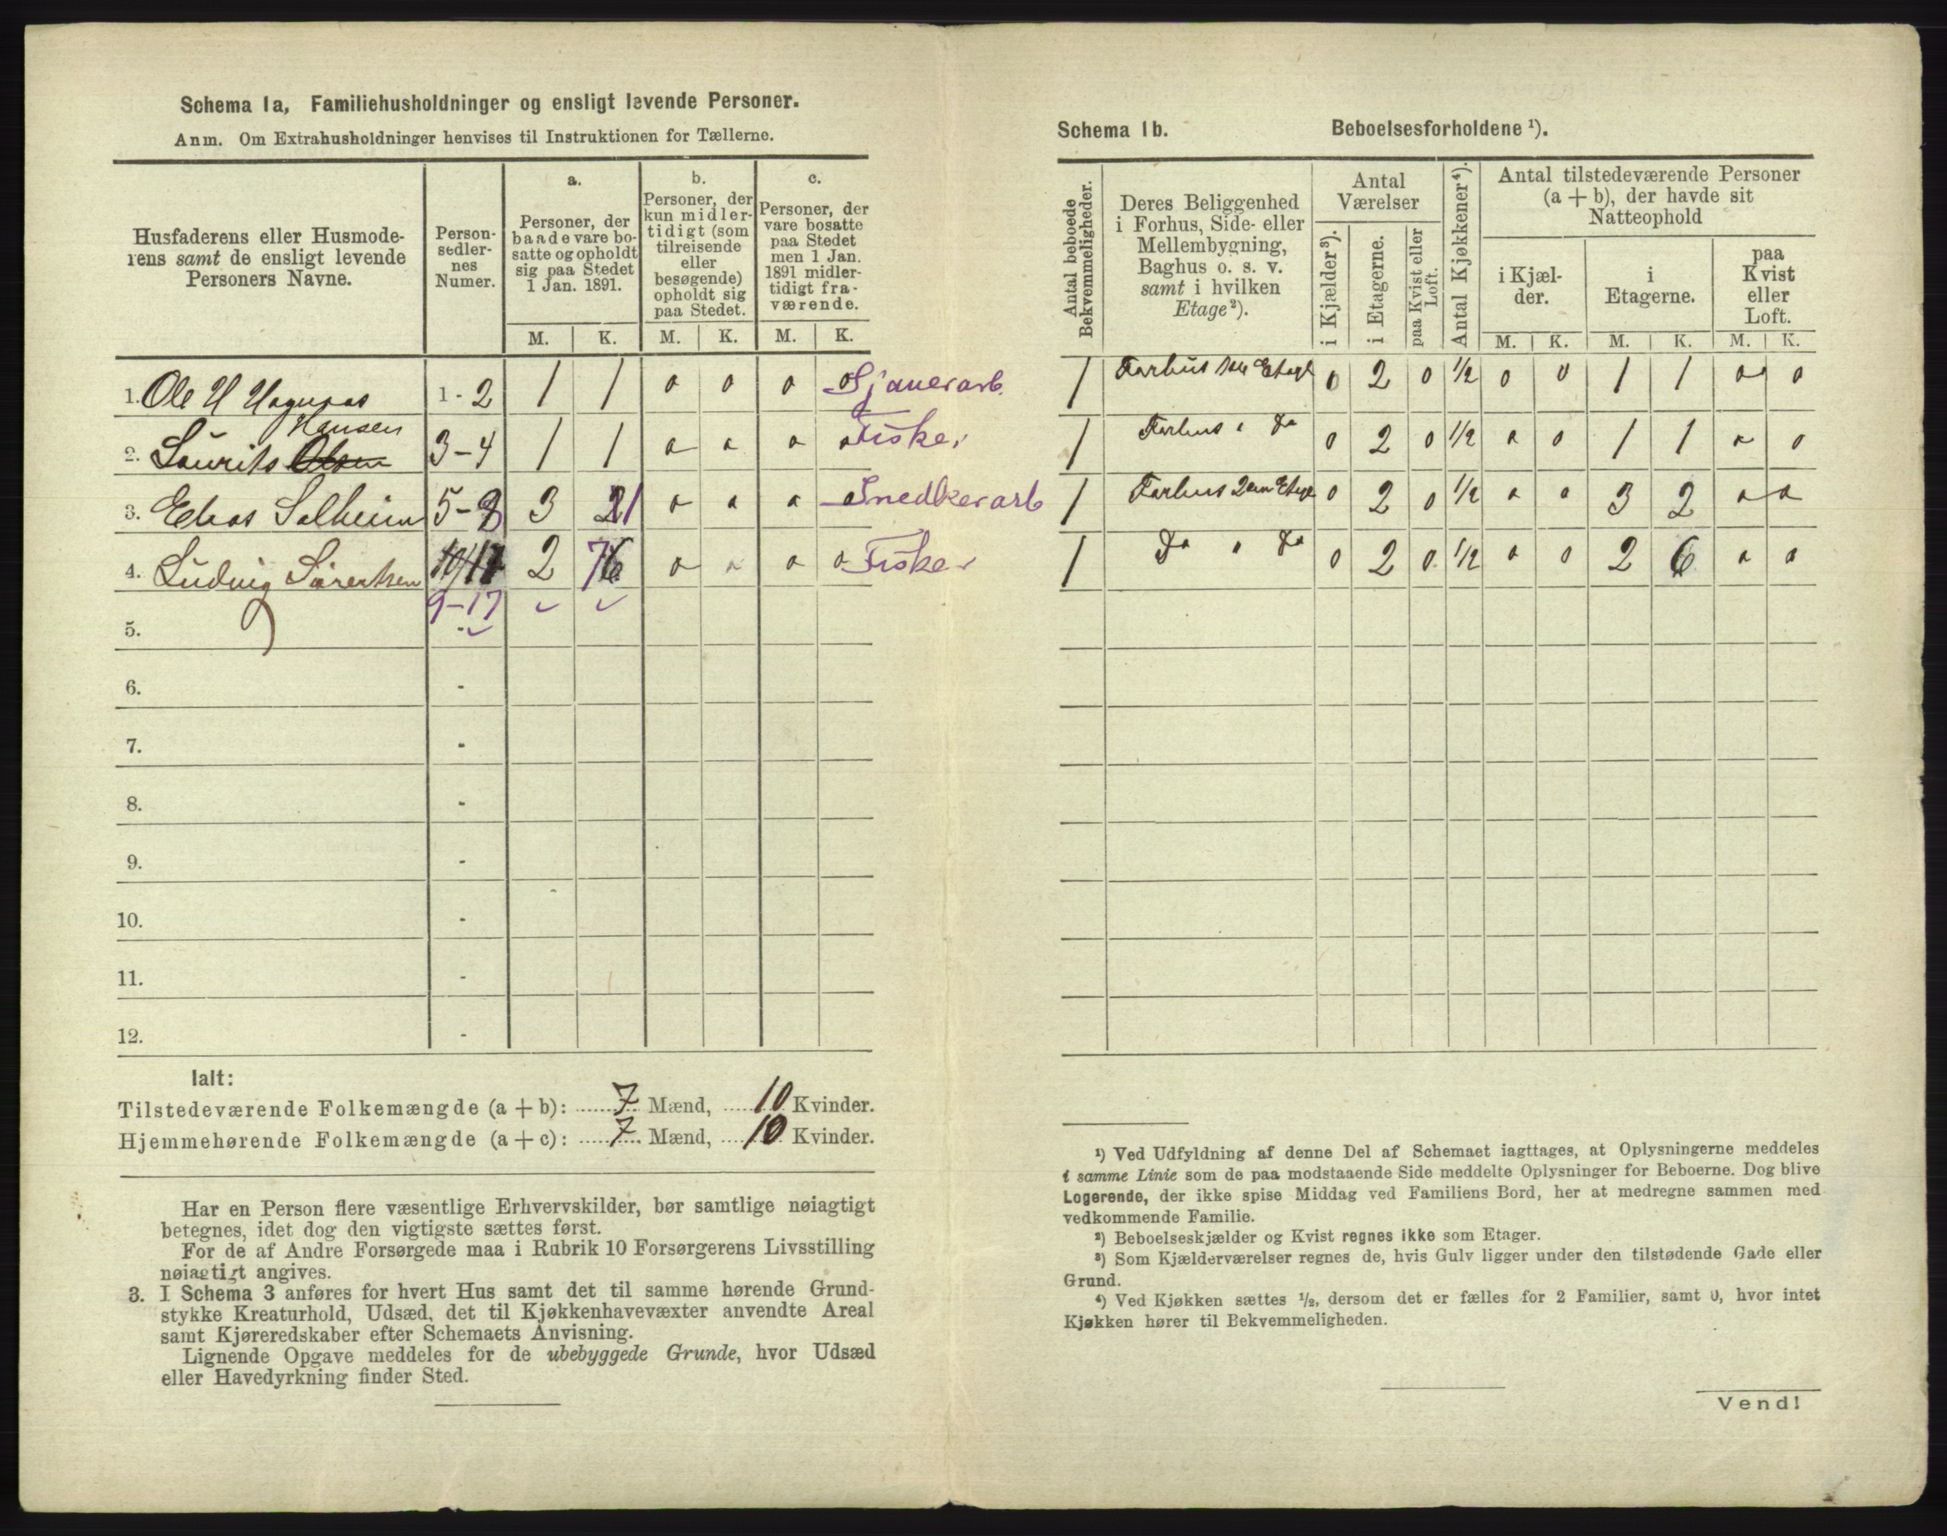 Schema 1a, Familiehusholdninger og ensligt levende Personer.
Anm. Om Extrahusholdninger henvises til Instruktionen for Tællerne.
Husfaderens eller Husmode-
rens samt de ensligt levende
Personers Navne.
Person-
sedler-
nes
Numer.
a.
Personer, der
baade vare bo-
satte og opholdt
sig paa Stedet
1 Jan. 1891.
b.
Personer, der
kun midler-
tidigt (som
tilreisende
eller
besøgende)
opholdt sig
paa Stedet.
c.
Personer, der
vare bosatte
paa Stedet
men 1 Jan.
1891 midler-
tidigt fra-
værende.
M. K. M. K. M. K.
1. Ole H 1 - 2 1 1 0 0 0 0 Sjauerarb.
Hansen
2. Laurits Olsen 3-4 1 1 0 0 0 0 Fisker
3. Solheim 5-8 3 1 0 0 0 0 Snedkerarb
4. Ludvig Sørensen 2 7 6 0 0 0 0 Fisker
9-17
5.
6. -
7. -
8. -
9. -
10. -
11. -
12. -
Ialt:
Tilstedeværende Folkemængde (a + b): 7 Mænd, 10 Kvinder.
Hjemmehørende Folkemængde (a + c): 7 Mænd, 10 Kvinder.
Har en Person flere væsentlige Erhvervskilder, bør samtlige nøiagtigt
betegnes, idet dog den vigtigste sættes først.
For de af Andre Forsørgede maa i Rubrik 10 Forsørgerens Livsstilling
nøiagtigt angives.
3. I Schema 3 anføres for hvert Hus samt det til samme hørende Grund-
stykke Kreaturhold, Udsæd, det til Kjøkkenhavevæxter anvendte Areal
samt Kjøreredskaber efter Schemaets Anvisning.
Lignende Opgave meddeles for de ubebyggede Grunde, hvor Udsæd
eller Havedyrkning finder Sted.
Schema 1b. Beboelsesforholdene ¹).
Antal beboede
Bekvemmeligheder.
Deres Beliggenhed
i Forhus, Side- eller
Mellembygning,
Baghus o. s. v.
samt i hvilken
Etage²).
Antal
Værelser
i Kjælder³).
i Etagerne.
paa Kvist eller
Loft.
Antal Kjøkkener⁴).
Antal tilstedeværende Personer
(a + b), der havde sit
Natteophold
i Kjæl-
der.
i
Etagerne.
paa
Kvist
eller
Loft.
M. K. M. K. M. K.
1 Forhus 1ste Etage 0 2 0 ½ 0 0 1 1 0 0
1 Forhus do 0 2 0 ½ 0 0 1 1 0 0
1 Forhus 2den Etage 0 2 0 ½ 0 0 3 2 0 0
1 do do 0 2 0 ½ 0 0 2 6 0 0
¹) Ved Udfyldning af denne Del af Schemaet iagttages, at Oplysningerne meddeles
i samme Linie som de paa modstaaende Side meddelte Oplysninger for Beboerne. Dog blive
Logerende, der ikke spise Middag ved Familiens Bord, her at medregne sammen med
vedkommende Familie.
²) Beboelseskjælder og Kvist regnes ikke som Etager.
³) Som Kjælderværelser regnes de, hvis Gulv ligger under den tilstødende Gade eller
Grund.
⁴) Ved Kjøkken sættes ½, dersom det er fælles for 2 Familier, samt 0, hvor intet
Kjøkken hører til Bekvemmeligheden.
Vend!